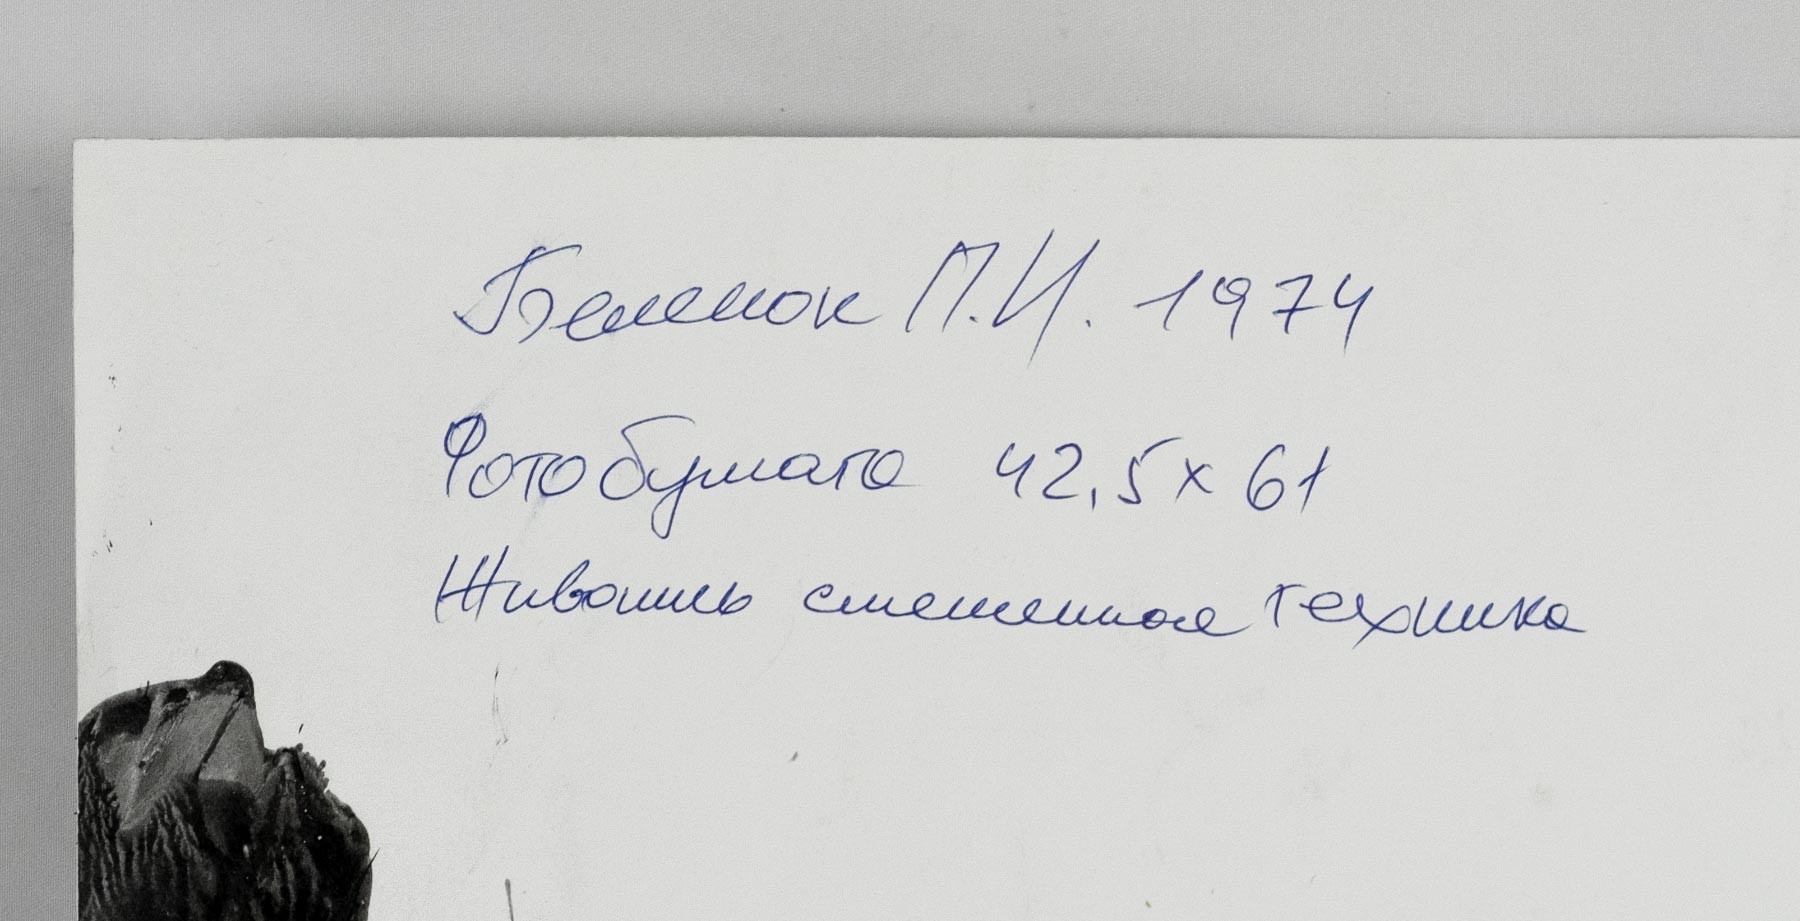 Беленок П.И. 1974
Фотобумага 42,5 x 61
Живопись смешенная техника